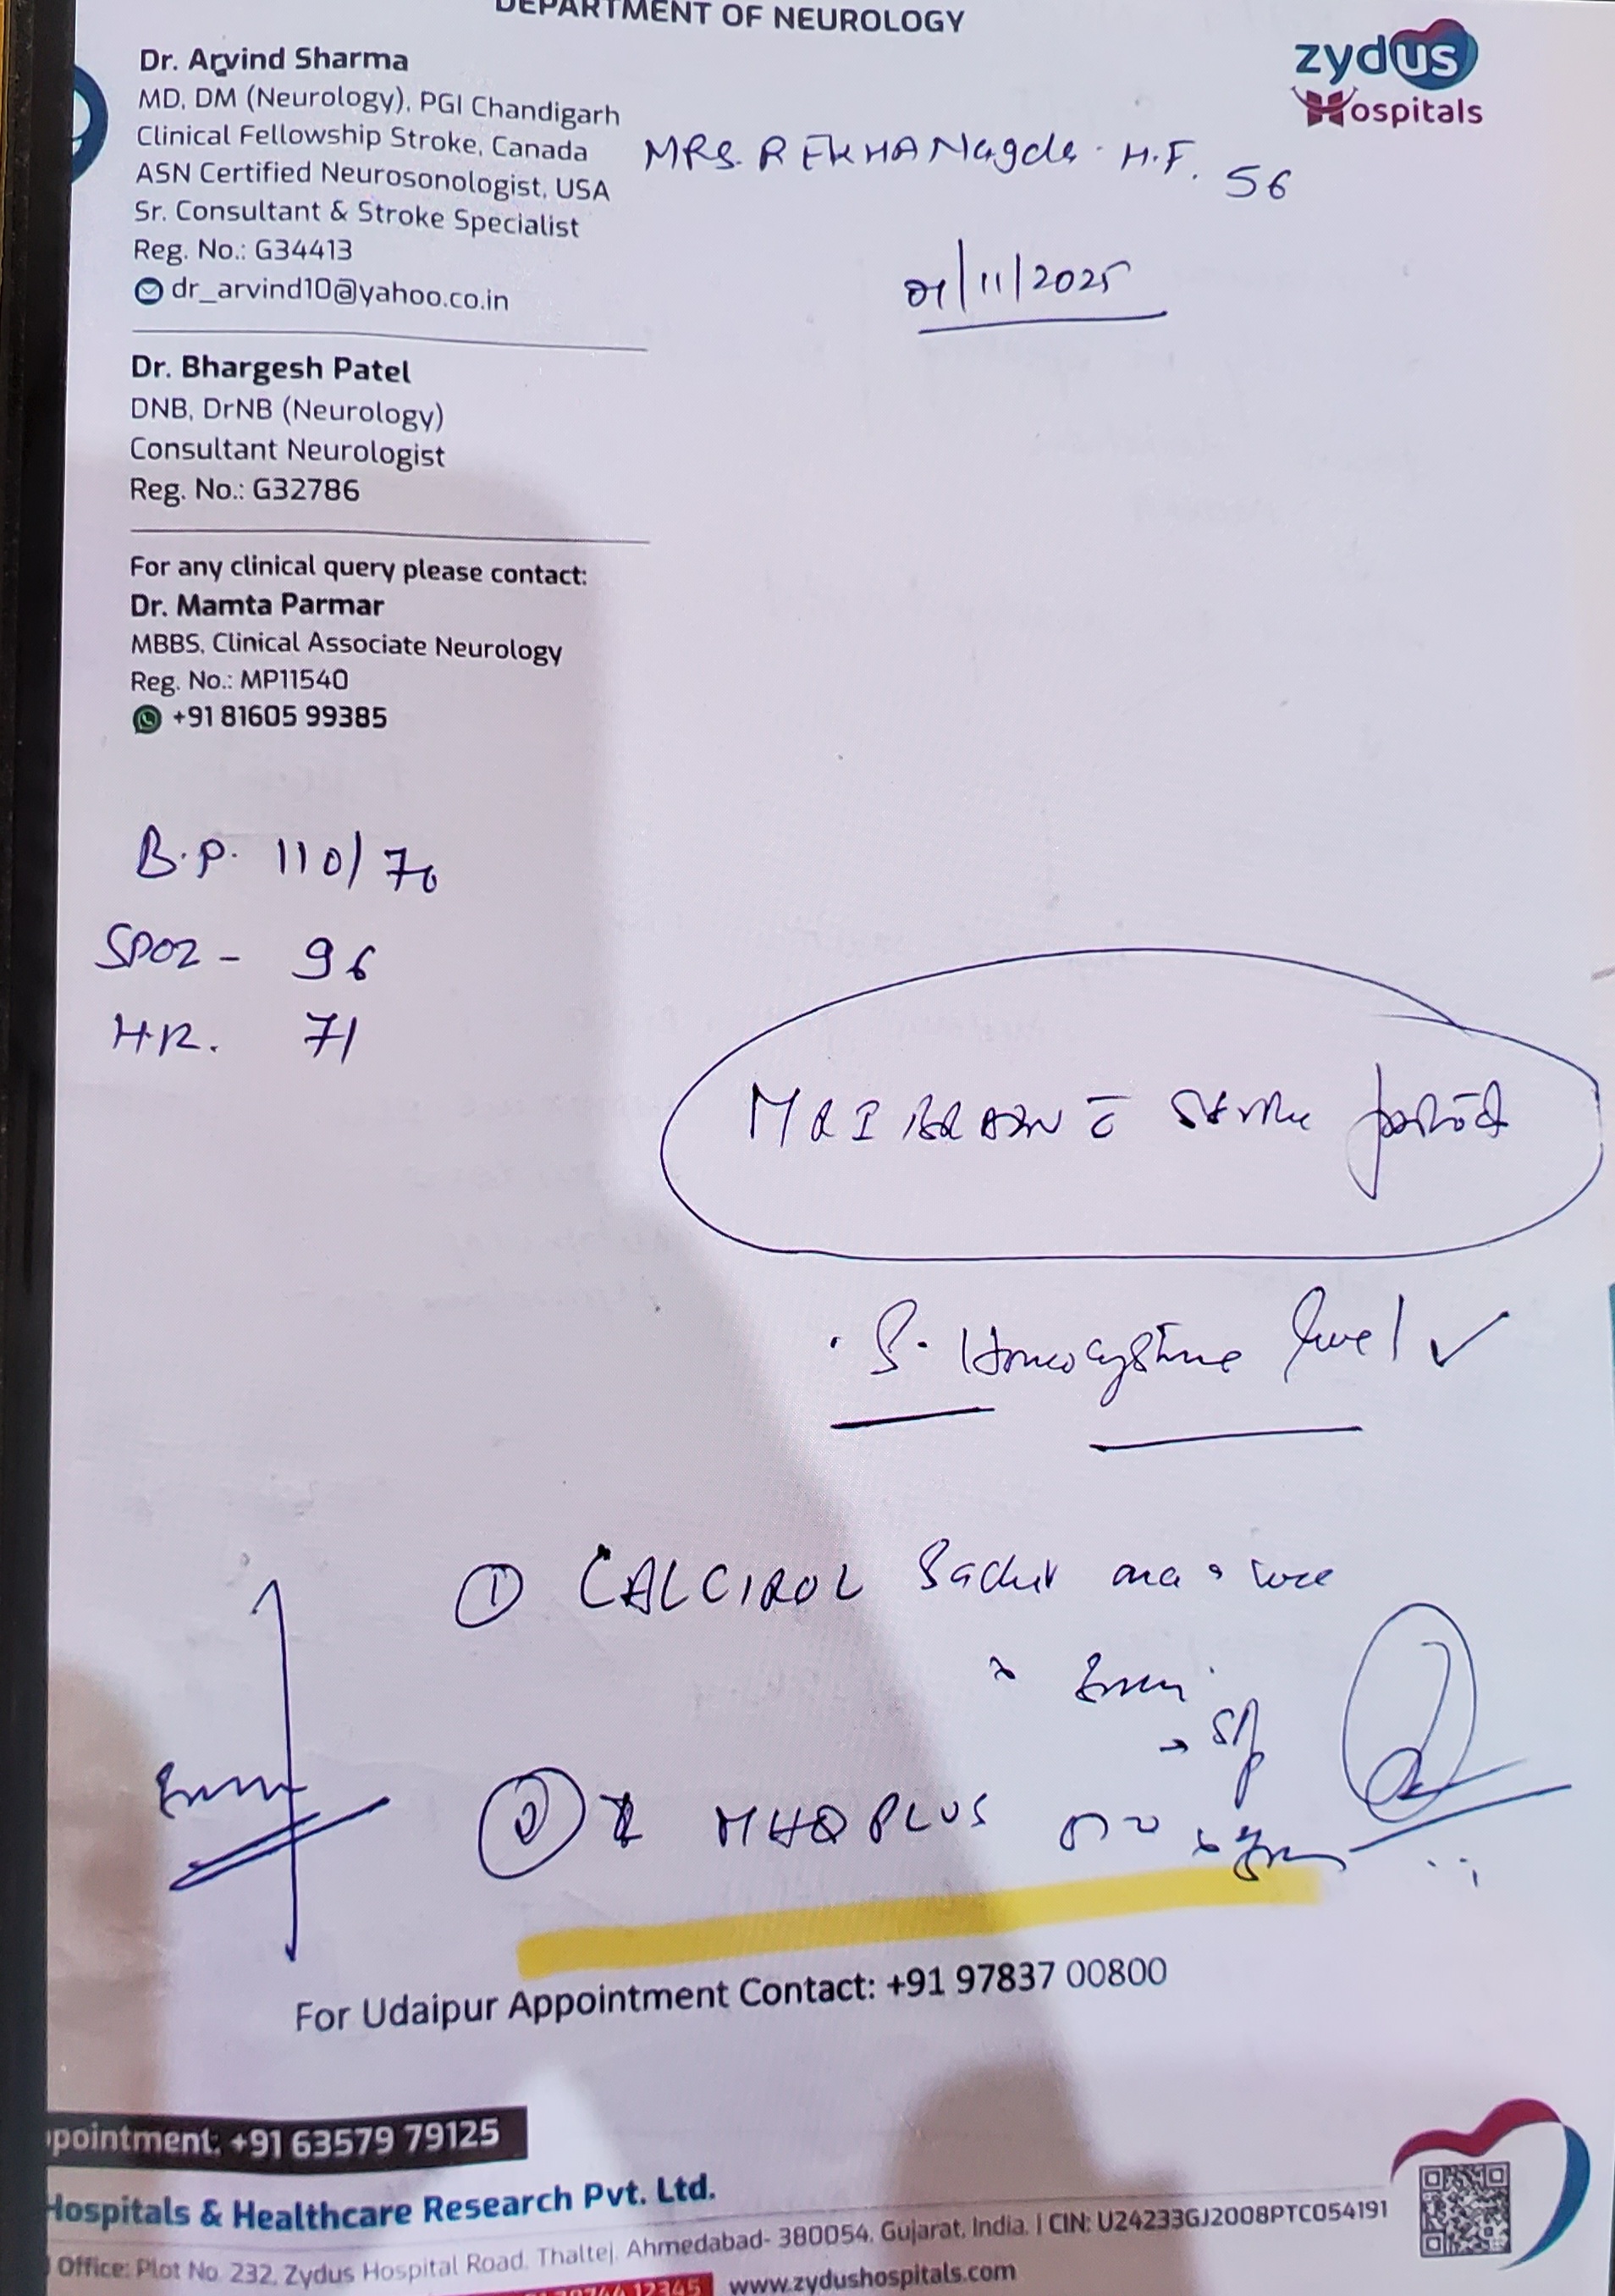 DEPARTMENT OF NEUROLOGY
zydus
Hospitals
Dr. Arvind Sharma
MD, DM (Neurology), PGI Chandigarh
Clinical Fellowship Stroke, Canada
ASN Certified Neurosonologist, USA
Sr. Consultant & Stroke Specialist
Reg. No.: G34413
dr_arvind10@yahoo.co.in
MRS. REKHA Nagda H.F. 56
01/11/2025
Dr. Bhargesh Patel
DNB, DrNB (Neurology)
Consultant Neurologist
Reg. No.: G32786
For any clinical query please contact:
Dr. Mamta Parmar
MBBS, Clinical Associate Neurology
Reg. No.: MP11540
+91 81605 99385
B.P. 110/70
SPO2 - 96
HR. 71
MRI BRAIN c̄ Stroke
S. Homocysteine level ✓
① CALCIROL Sachet once a
② MHQ PLUS
For Udaipur Appointment Contact: +91 97837 00800
pointment: +91 63579 79125
Hospitals & Healthcare Research Pvt. Ltd.
Office: Plot No. 232, Zydus Hospital Road, Thaltej, Ahmedabad- 380054, Gujarat, India. | CIN: U24233GJ2008PTC054191
www.zydushospitals.com